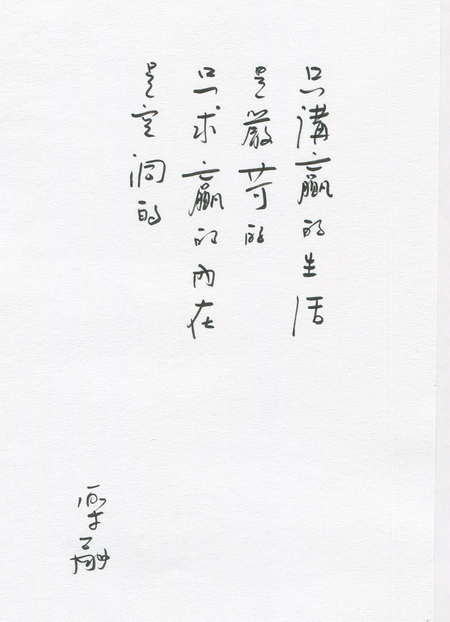 只講贏的生活
是嚴苛的
只求贏的內在
是空洞的